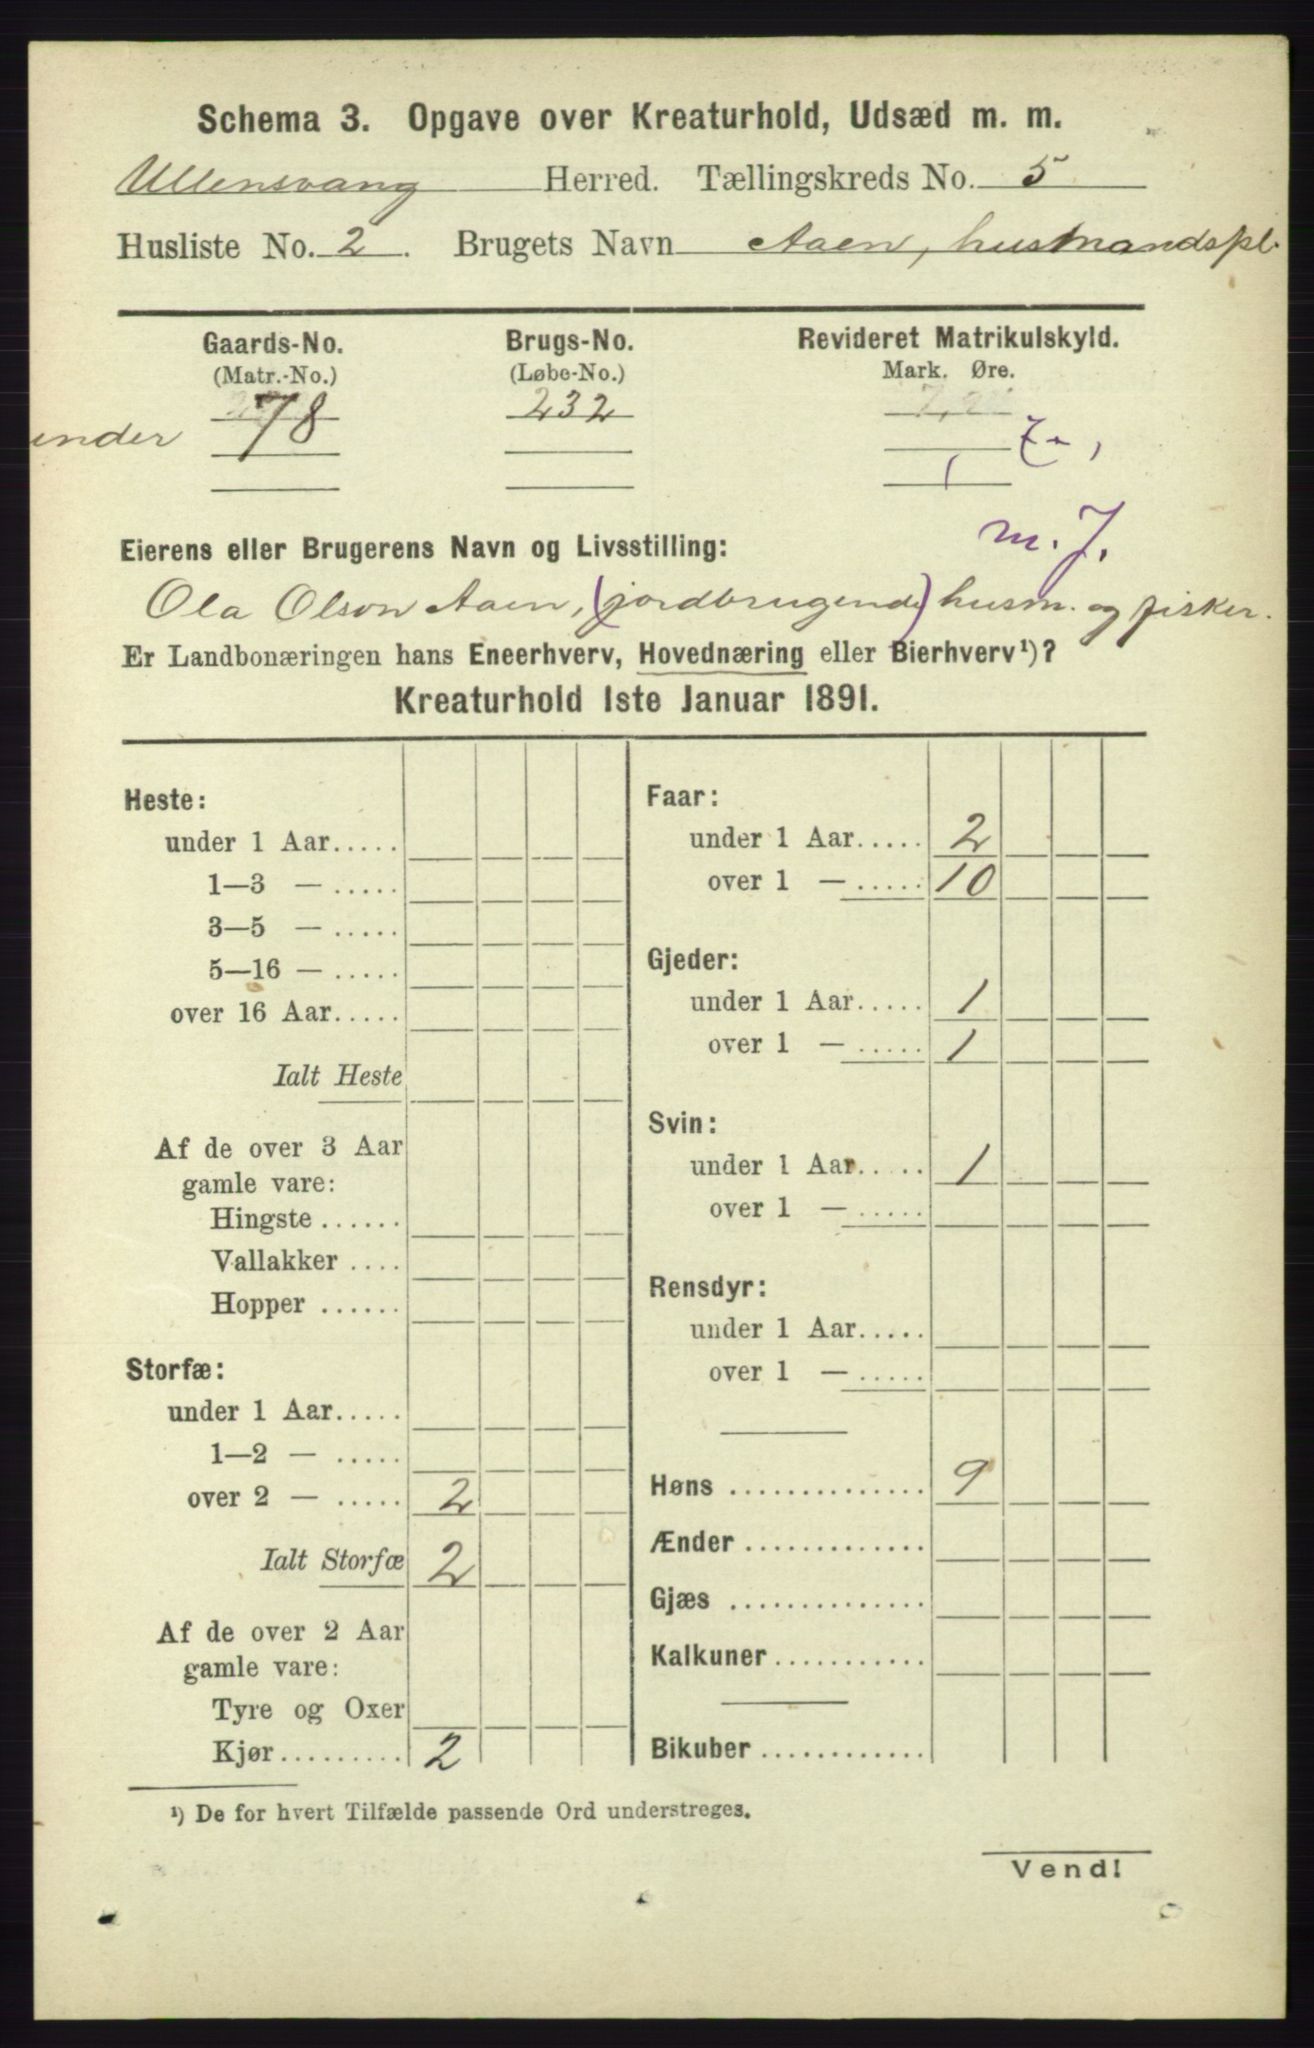 Schema 3. Opgave over Kreaturhold, Udsæd m. m.
Ullensvang Herred. Tællingskreds No. 5
Husliste No. 2. Brugets Navn Aaen, husmandspl.
Gaards-No. Brugs-No. Revideret Matrikulskyld.
(Matr.-No.) (Løbe-No.) Mark. Øre.
under 78 232
m. J.
Eierens eller Brugerens Navn og Livsstilling:
Ola Olson Aaen, (jordbrugende) husm. og fisker.
Er Landbonæringen hans Eneerhverv, Hovednæring eller Bierhverv¹)?
Kreaturhold 1ste Januar 1891.
Heste:
under 1 Aar.....
1—3 — .....
3—5 — .....
5—16 — .....
over 16 Aar.....
Ialt Heste
Af de over 3 Aar
gamle vare:
Hingste ......
Vallakker ....
Hopper ......
Storfæ:
under 1 Aar.....
1—2 — .....
over 2 — ..... 2
Ialt Storfæ 2
Af de over 2 Aar
gamle vare:
Tyre og Oxer
Kjør......... 2
Faar:
under 1 Aar..... 2
over 1 — ..... 10
Gjeder:
under 1 Aar..... 1
over 1 — ..... 1
Svin:
under 1 Aar..... 1
over 1 — .....
Rensdyr:
under 1 Aar.....
over 1 — .....
Høns .............. 9
Ænder .............
Gjæs ..............
Kalkuner...........
Bikuber ............
¹) De for hvert Tilfælde passende Ord understreges.
Vend!